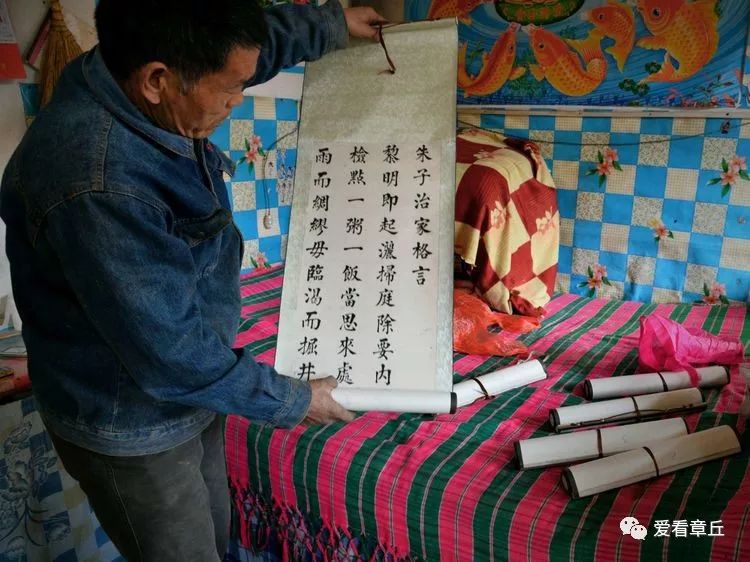 朱子治家格言
黎明即起灑掃庭除要內
檢點一粥一飯當思來處
雨而綢繆毋臨渴而掘井
爱看章丘